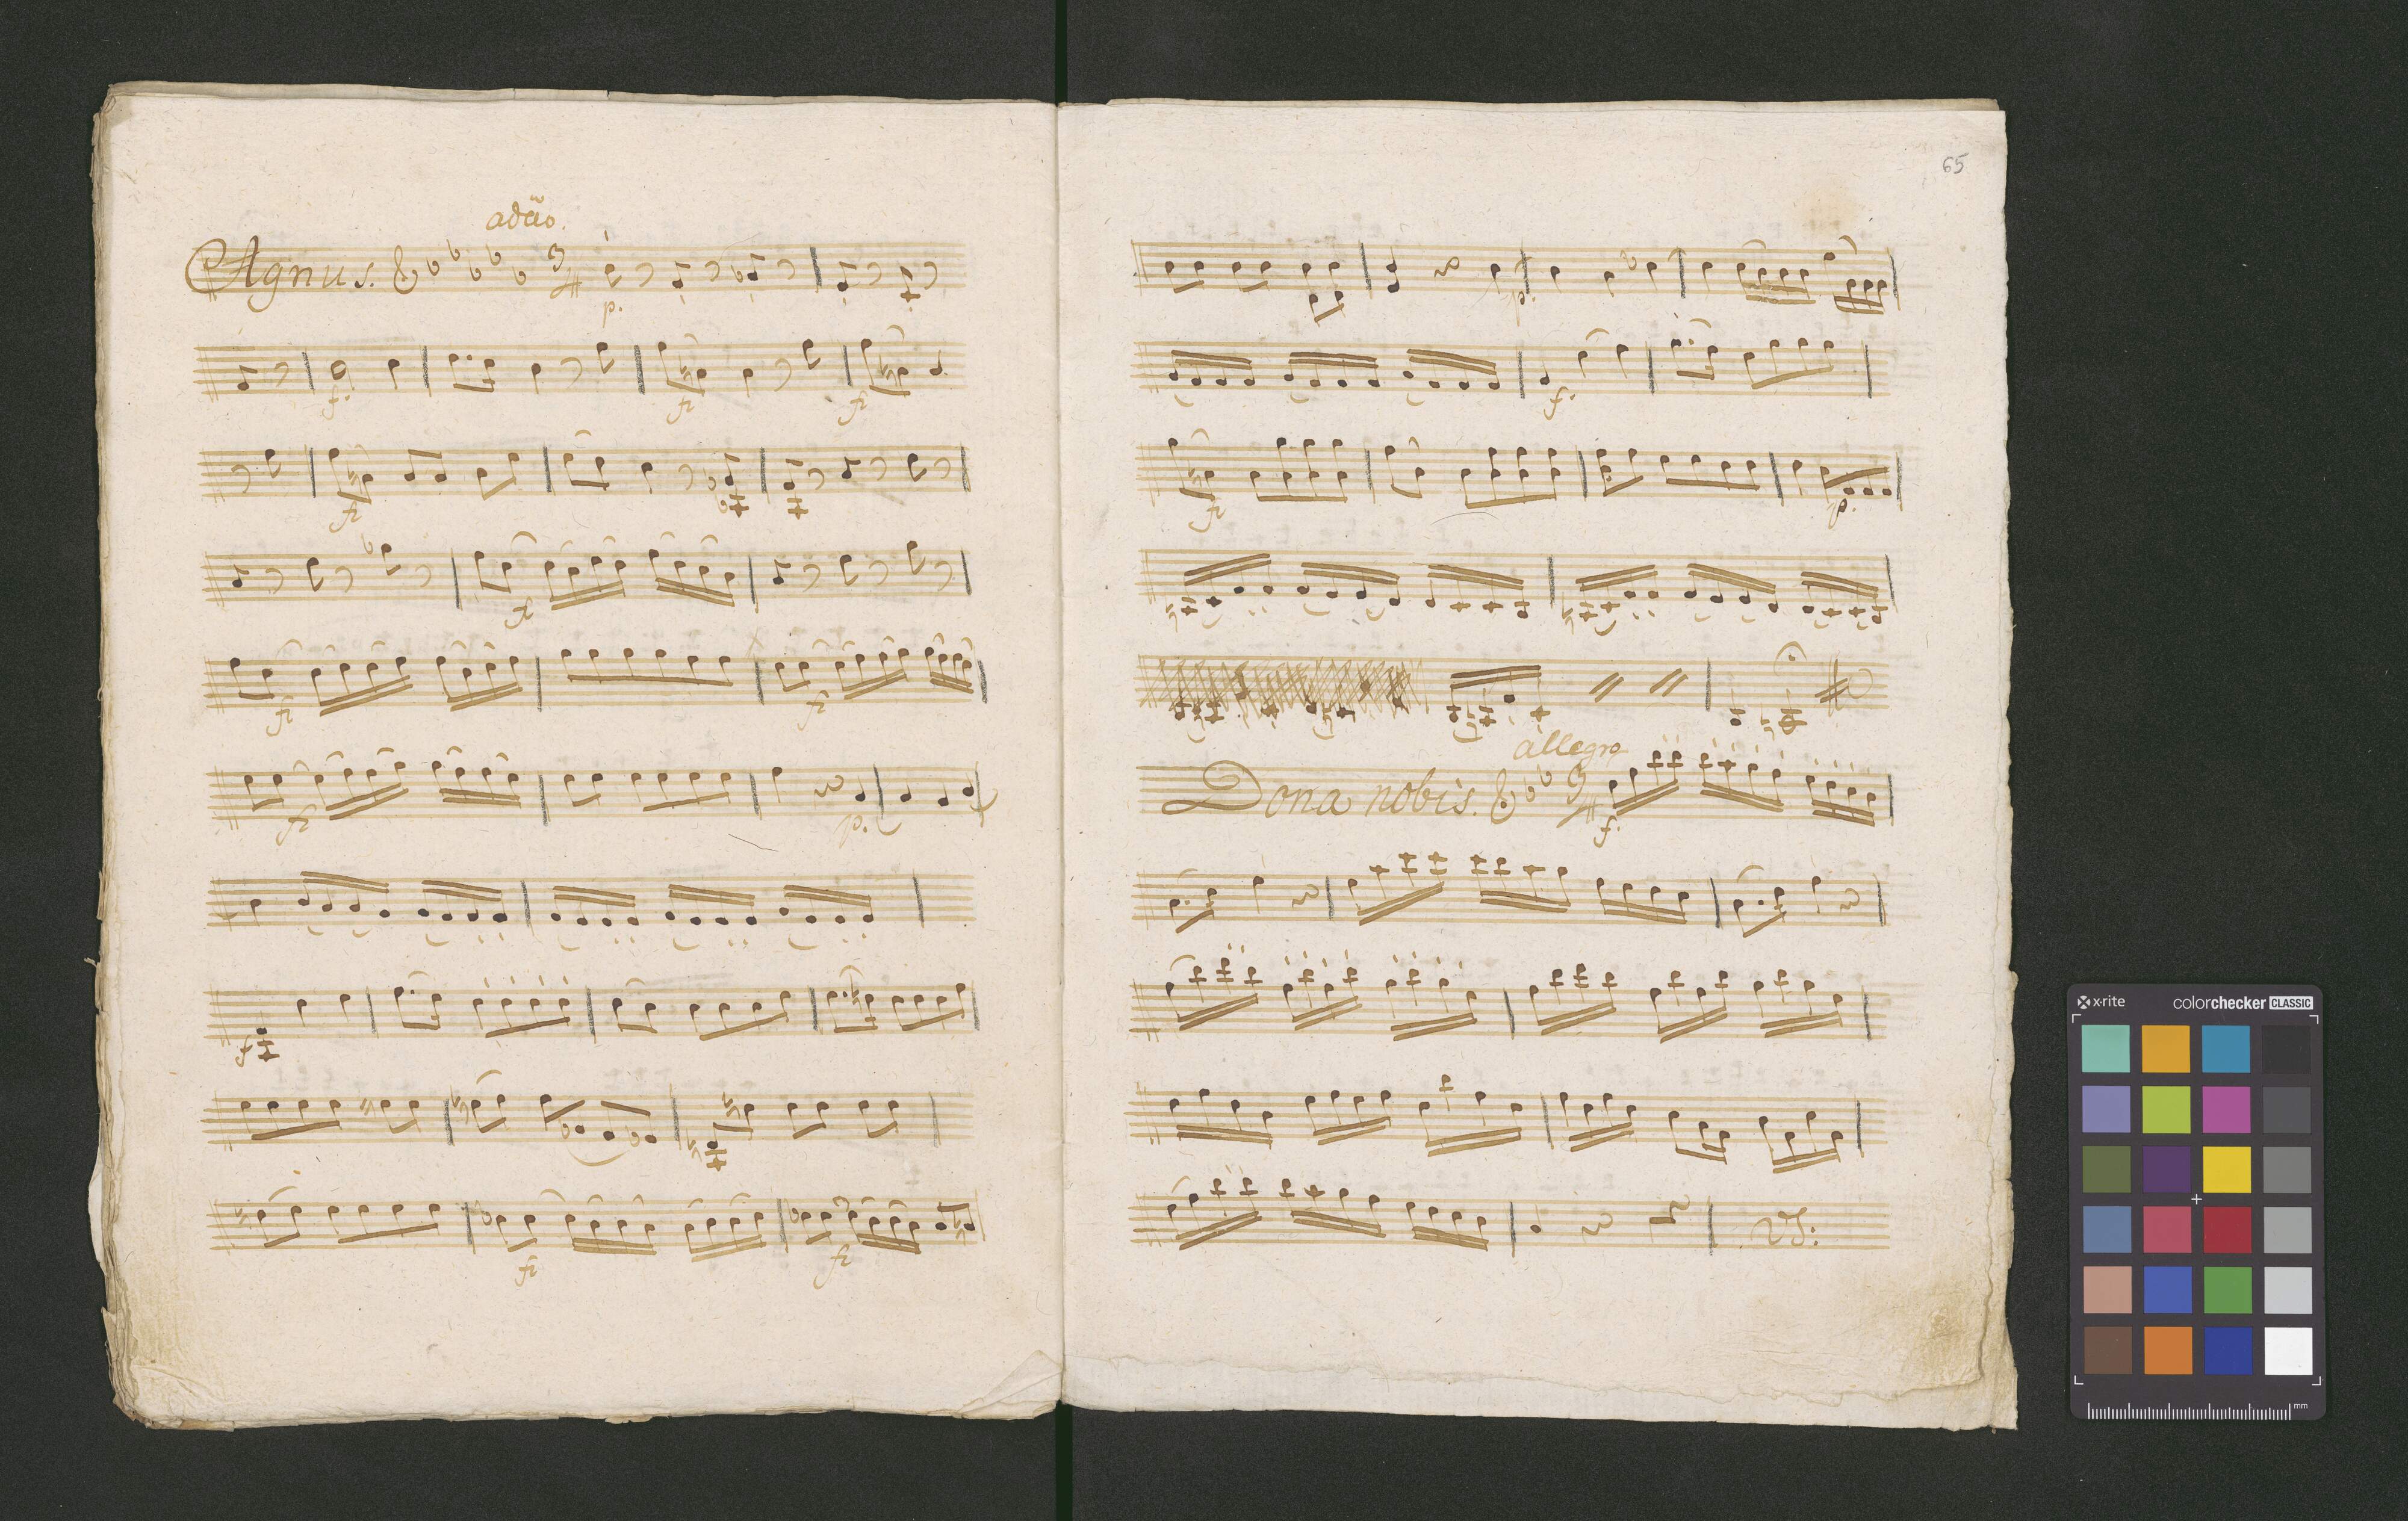 adãο.
Agnus. 3/4
p.
f.
fz
fz
fz
fz
fz
fz
fz
p.
f
fz
fz
65
p.
f.
fz
p.
allegro
Dona nobis. 3/4
f.
VS:
x-rite
colorchecker CLASSIC
mm